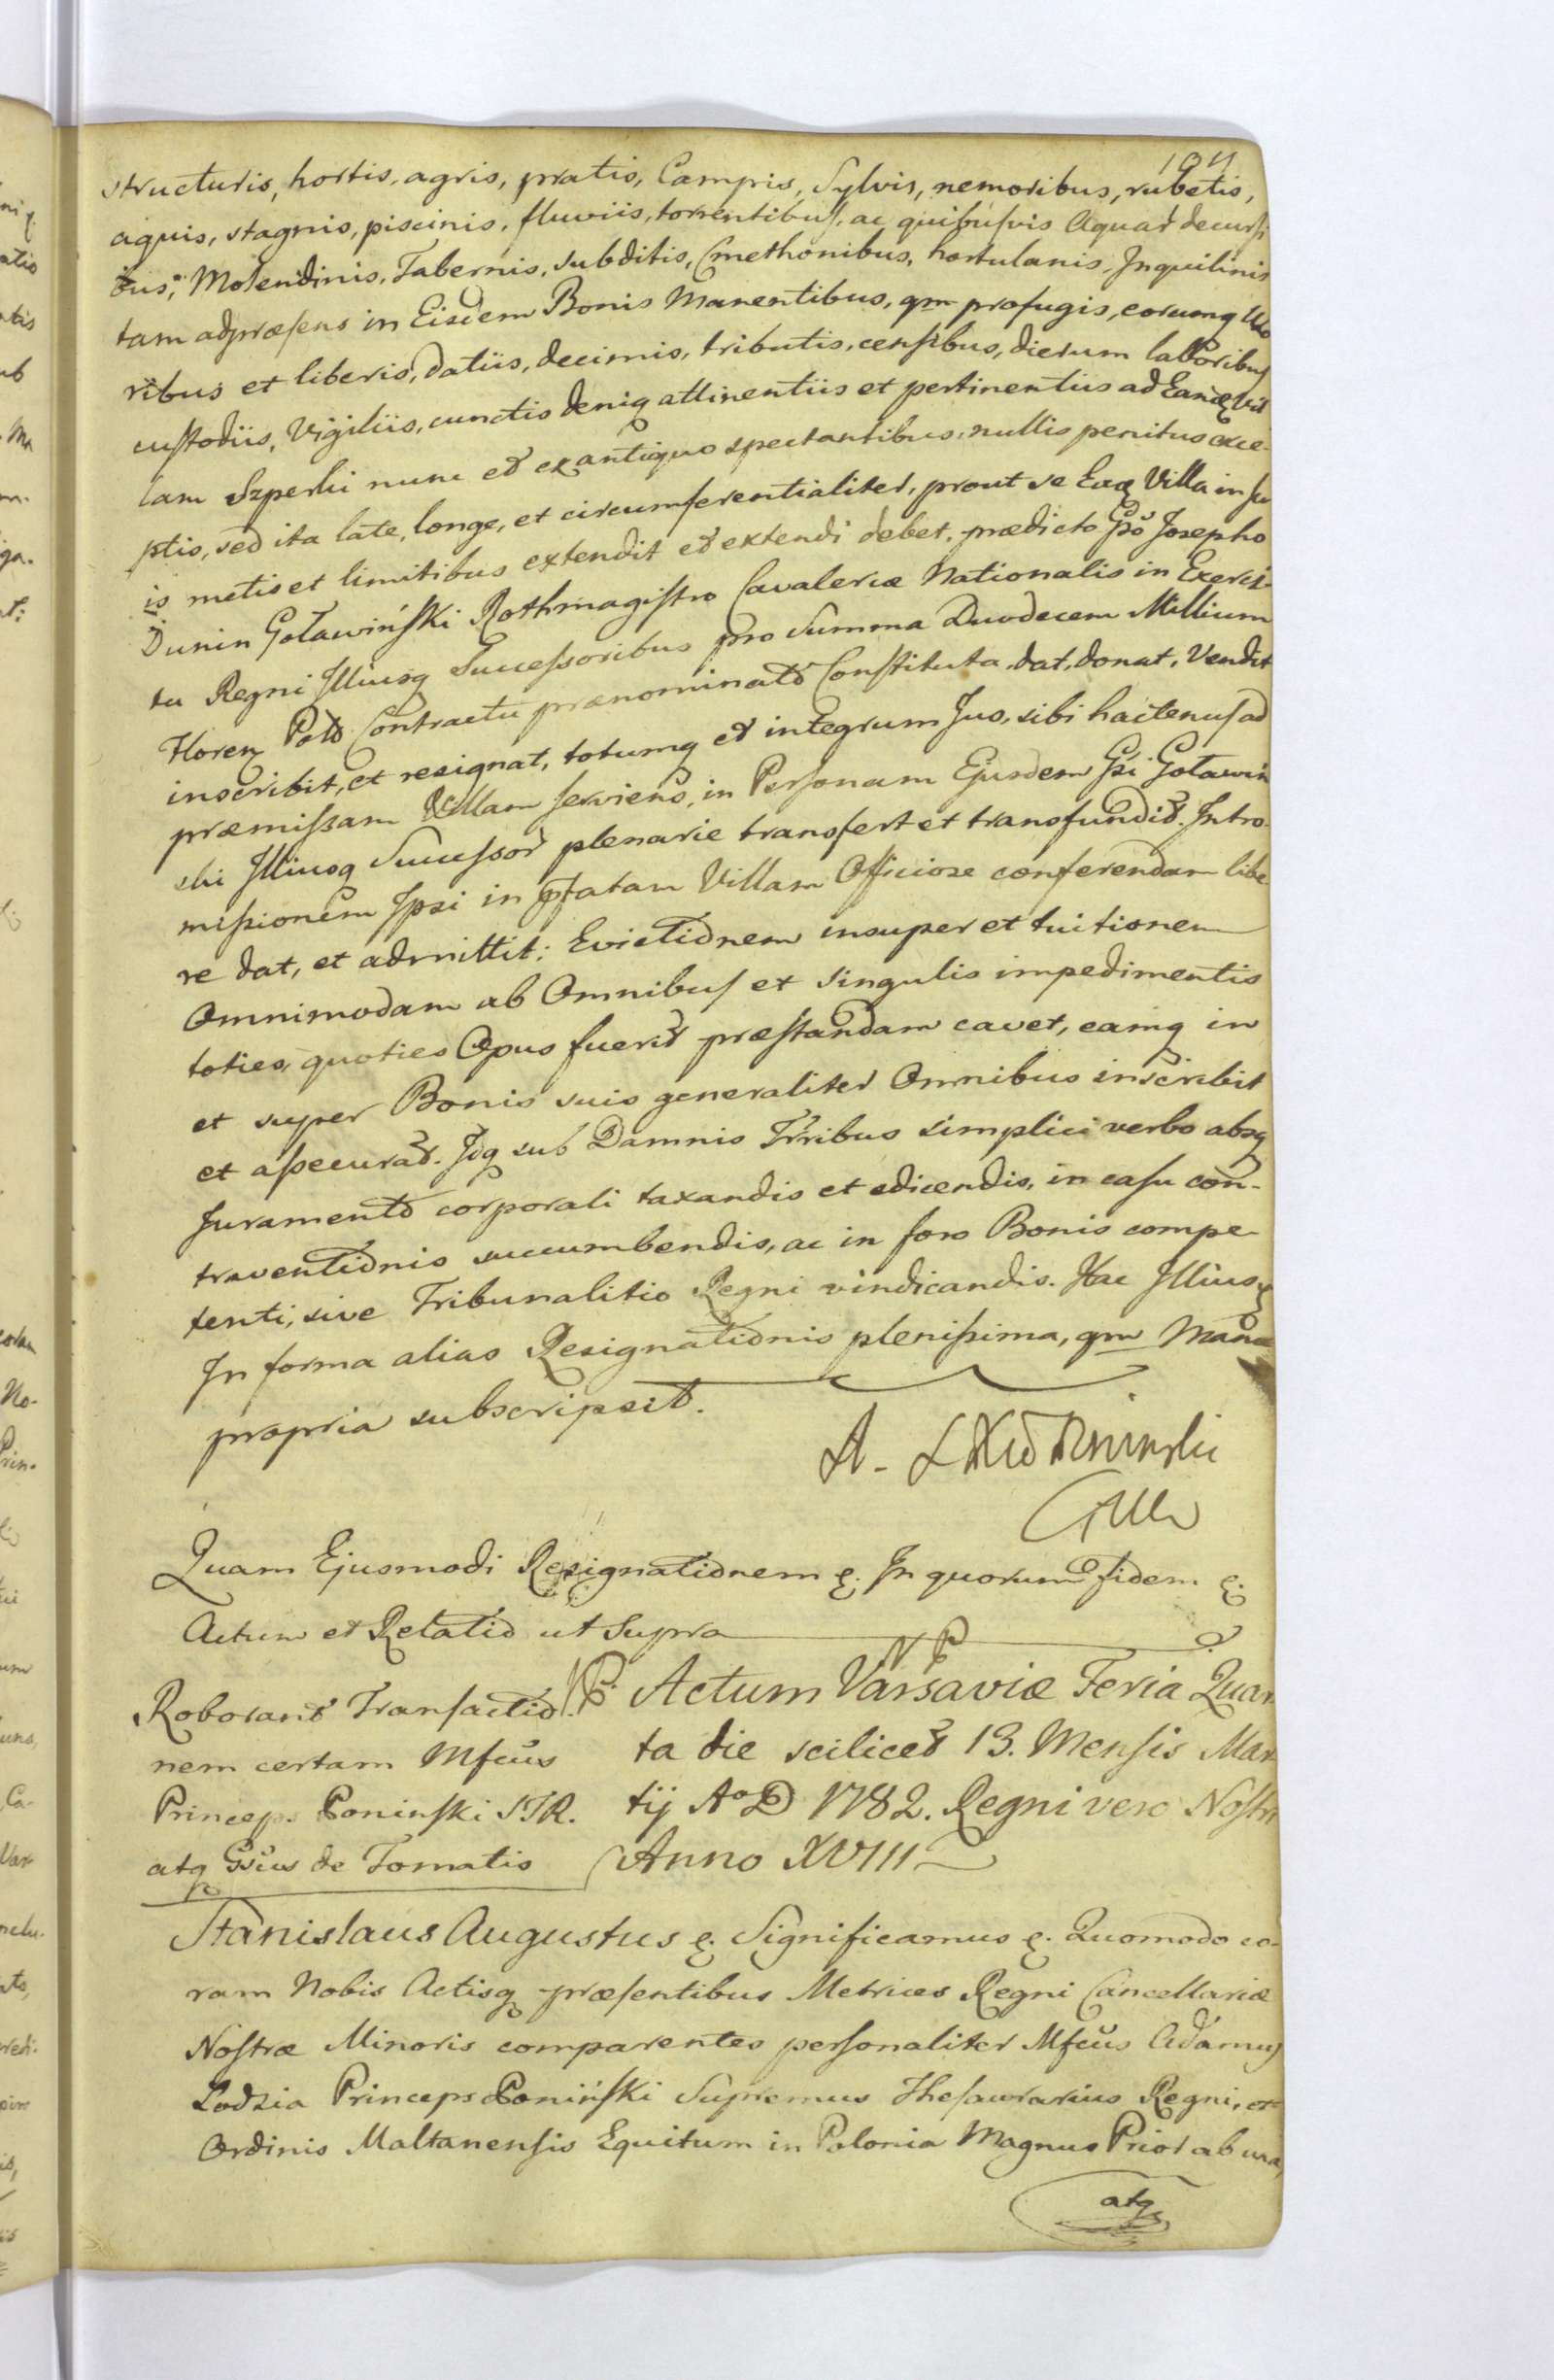 structuris, hortis, agris, pratis, Campis, Sylvis, nemoribus, rubetis,
aquis, stagnis, piscinis, fluviis, torrentibus, ac quibusvis Aquar decursi
bus, Molendinis, Tabernis, subditis, Cmethonibus, hortulanis, Inquilinis
tam adpræsens in Eisdem Bonis Manentibus, qm profugis, eorumq Uxo
ribus et liberis, Datiis, decimis, tributis, censibus, dierum laboribus
custodiis, Vigiliis, cunctis deniq attinentiis et pertinentiis ad Eandę Vil
lam Szperki nunc et ex antiquo spectantibus, nullis penitus exce
ptis, sed ita late, longe, et circumferentialiter, prout se Eadę Villa in su
is metis et limitibus extendit et extendi debet, prædicto Gso Josepho
Dunin Goławiński Rothmagistro Cavaleriæ Nationalis in Exerci-
tu Regni Illiusq Successoribus pro Summa Duodecem Millium
Floren Pold Contractu prænominato Constituta, dat, donat, Vendit
inscribit, et resignat, totumq et integrum Jus, sibi hactenus ad
præmissam Villam serviens, in Personam Ejusdem Gsi Goławiń
ski Illiusq Successor plenarie transfert et transfundit. Intro-
missionem Ipsi in ptatam Villam Officiose conferendam libe
re dat, et admittit; Evictionem insuper et tuitionem
Omnimodam ab Omnibus et singulis impedimentis
toties, quoties Opus fuerit præstandam cavet, eamq in
et super Bonis suis generaliter Omnibus inscribit
et assecurat. Idq sub Damnis Trribus simplici verbo absq
Juramento corporali taxandis et edicendis, in casu con-
traventionis succumbendis, ac in foro Bonis compe-
tenti, sive Tribunalitio Regni vindicandis. Hac Illiusq
In forma alias Resignationis plenissima, qm Manu
propria subscripsit.
Quam Ejusmodi Resignationem ę. In quorum fidem ę.
Actum et Relatio ut Supra
Roborant Transactio
nem certam Mfcus
Princeps Poninski STR.
atq Gsus de Tomatis
Actum Varsaviæ Feria Quar
ta die scilicet 13. Mensis Mar
tij AoD 1782. Regni vero Nostri
Anno XVIII
Stanislaus Augustus ę. Significamus ę. Quomodo co-
ram Nobis Actisq præsentibus Metrices Regni Cancellariæ
Nostræ Minoris comparentes personaliter Mfcus Adamus
Lodzia Princeps Poniński Supremus Thesaurarius Regni, et
Ordinis Maltanensis Equitum in Polonia Magnus Prior ab una,
atq